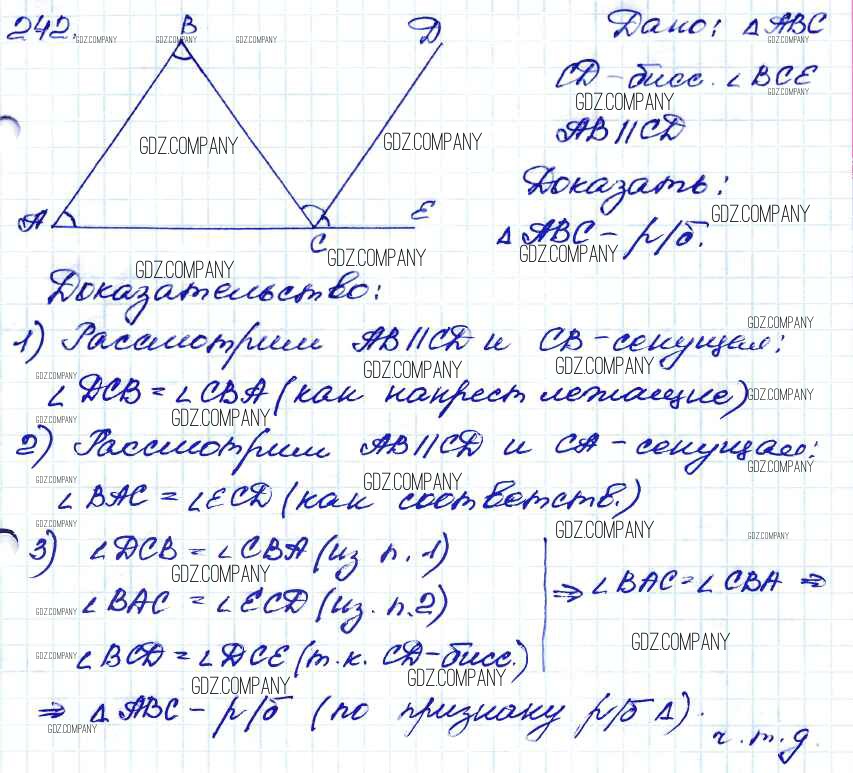 242.
B
D
A
C
E
Дано: △ABC
CD - бисс. ∠BCE
AB || CD
Доказать:
△ABC - р/б.
Доказательство:
1) Рассмотрим AB||CD и CB - секущая:
∠DCB = ∠CBA (как накрест лежащие)
2) Рассмотрим AB||CD и CA - секущая:
∠BAC = ∠ECD (как соответств.)
3) ∠DCB = ∠CBA (из п. 1)
∠BAC = ∠ECD (из. п. 2)
∠BCD = ∠DCE (т.к. CD - бисс.)
⇒ ∠BAC = ∠CBA ⇒
⇒ △ABC - р/б (по признаку р/б △).
ч.т.д.
GDZ.COMPANY